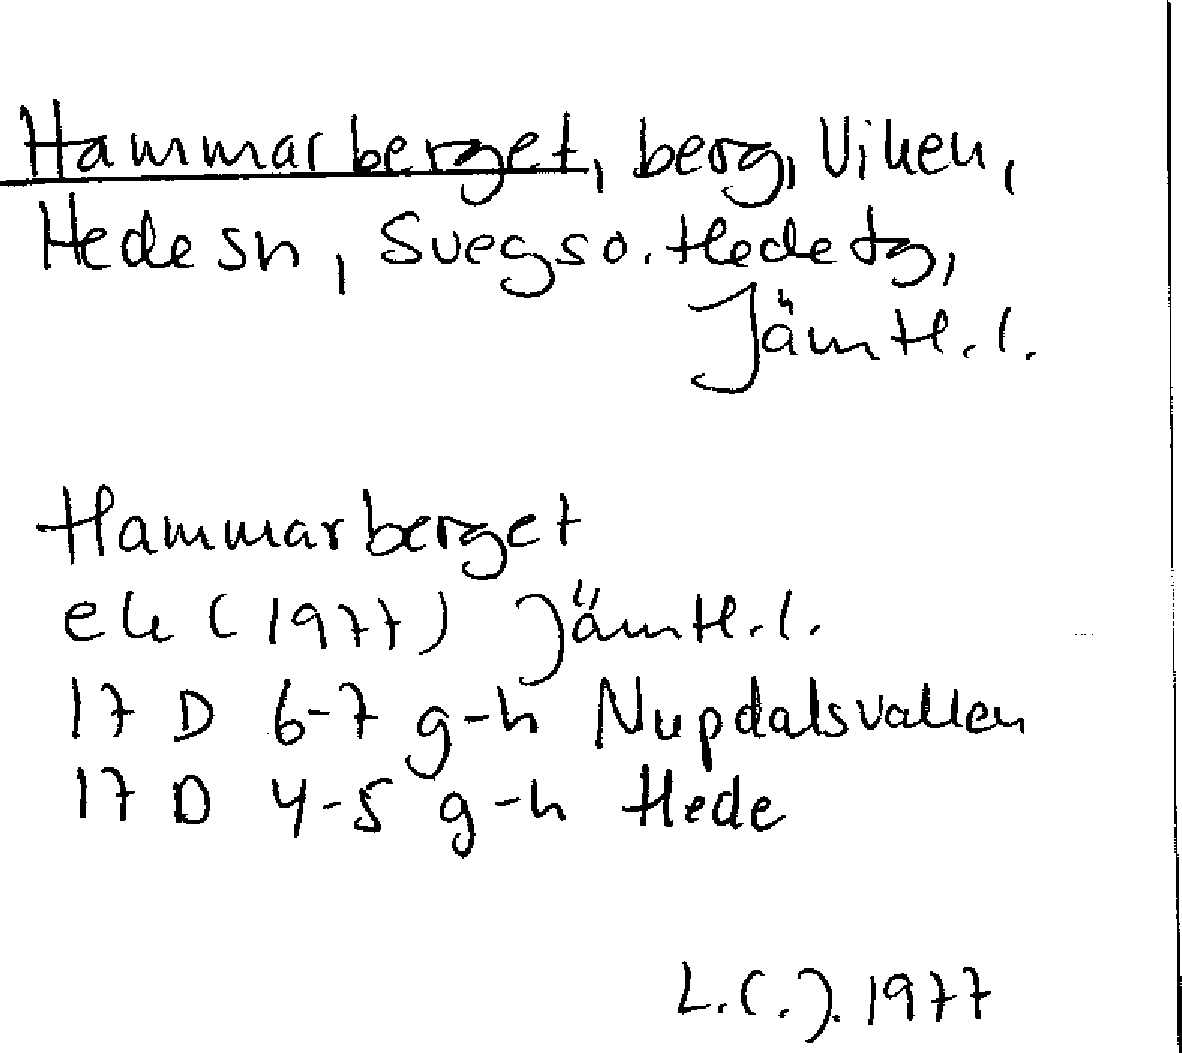 Hammarberget, berg, Viken,
Hede sn, Svegs o. Hede tg,
Jämtl. l.
Hammarberget
ek (1977) Jämtl. l.
17 D 6-7 g-h Nupdalsvallen
17 D 4-5 g-h Hede
L.C.J. 1977